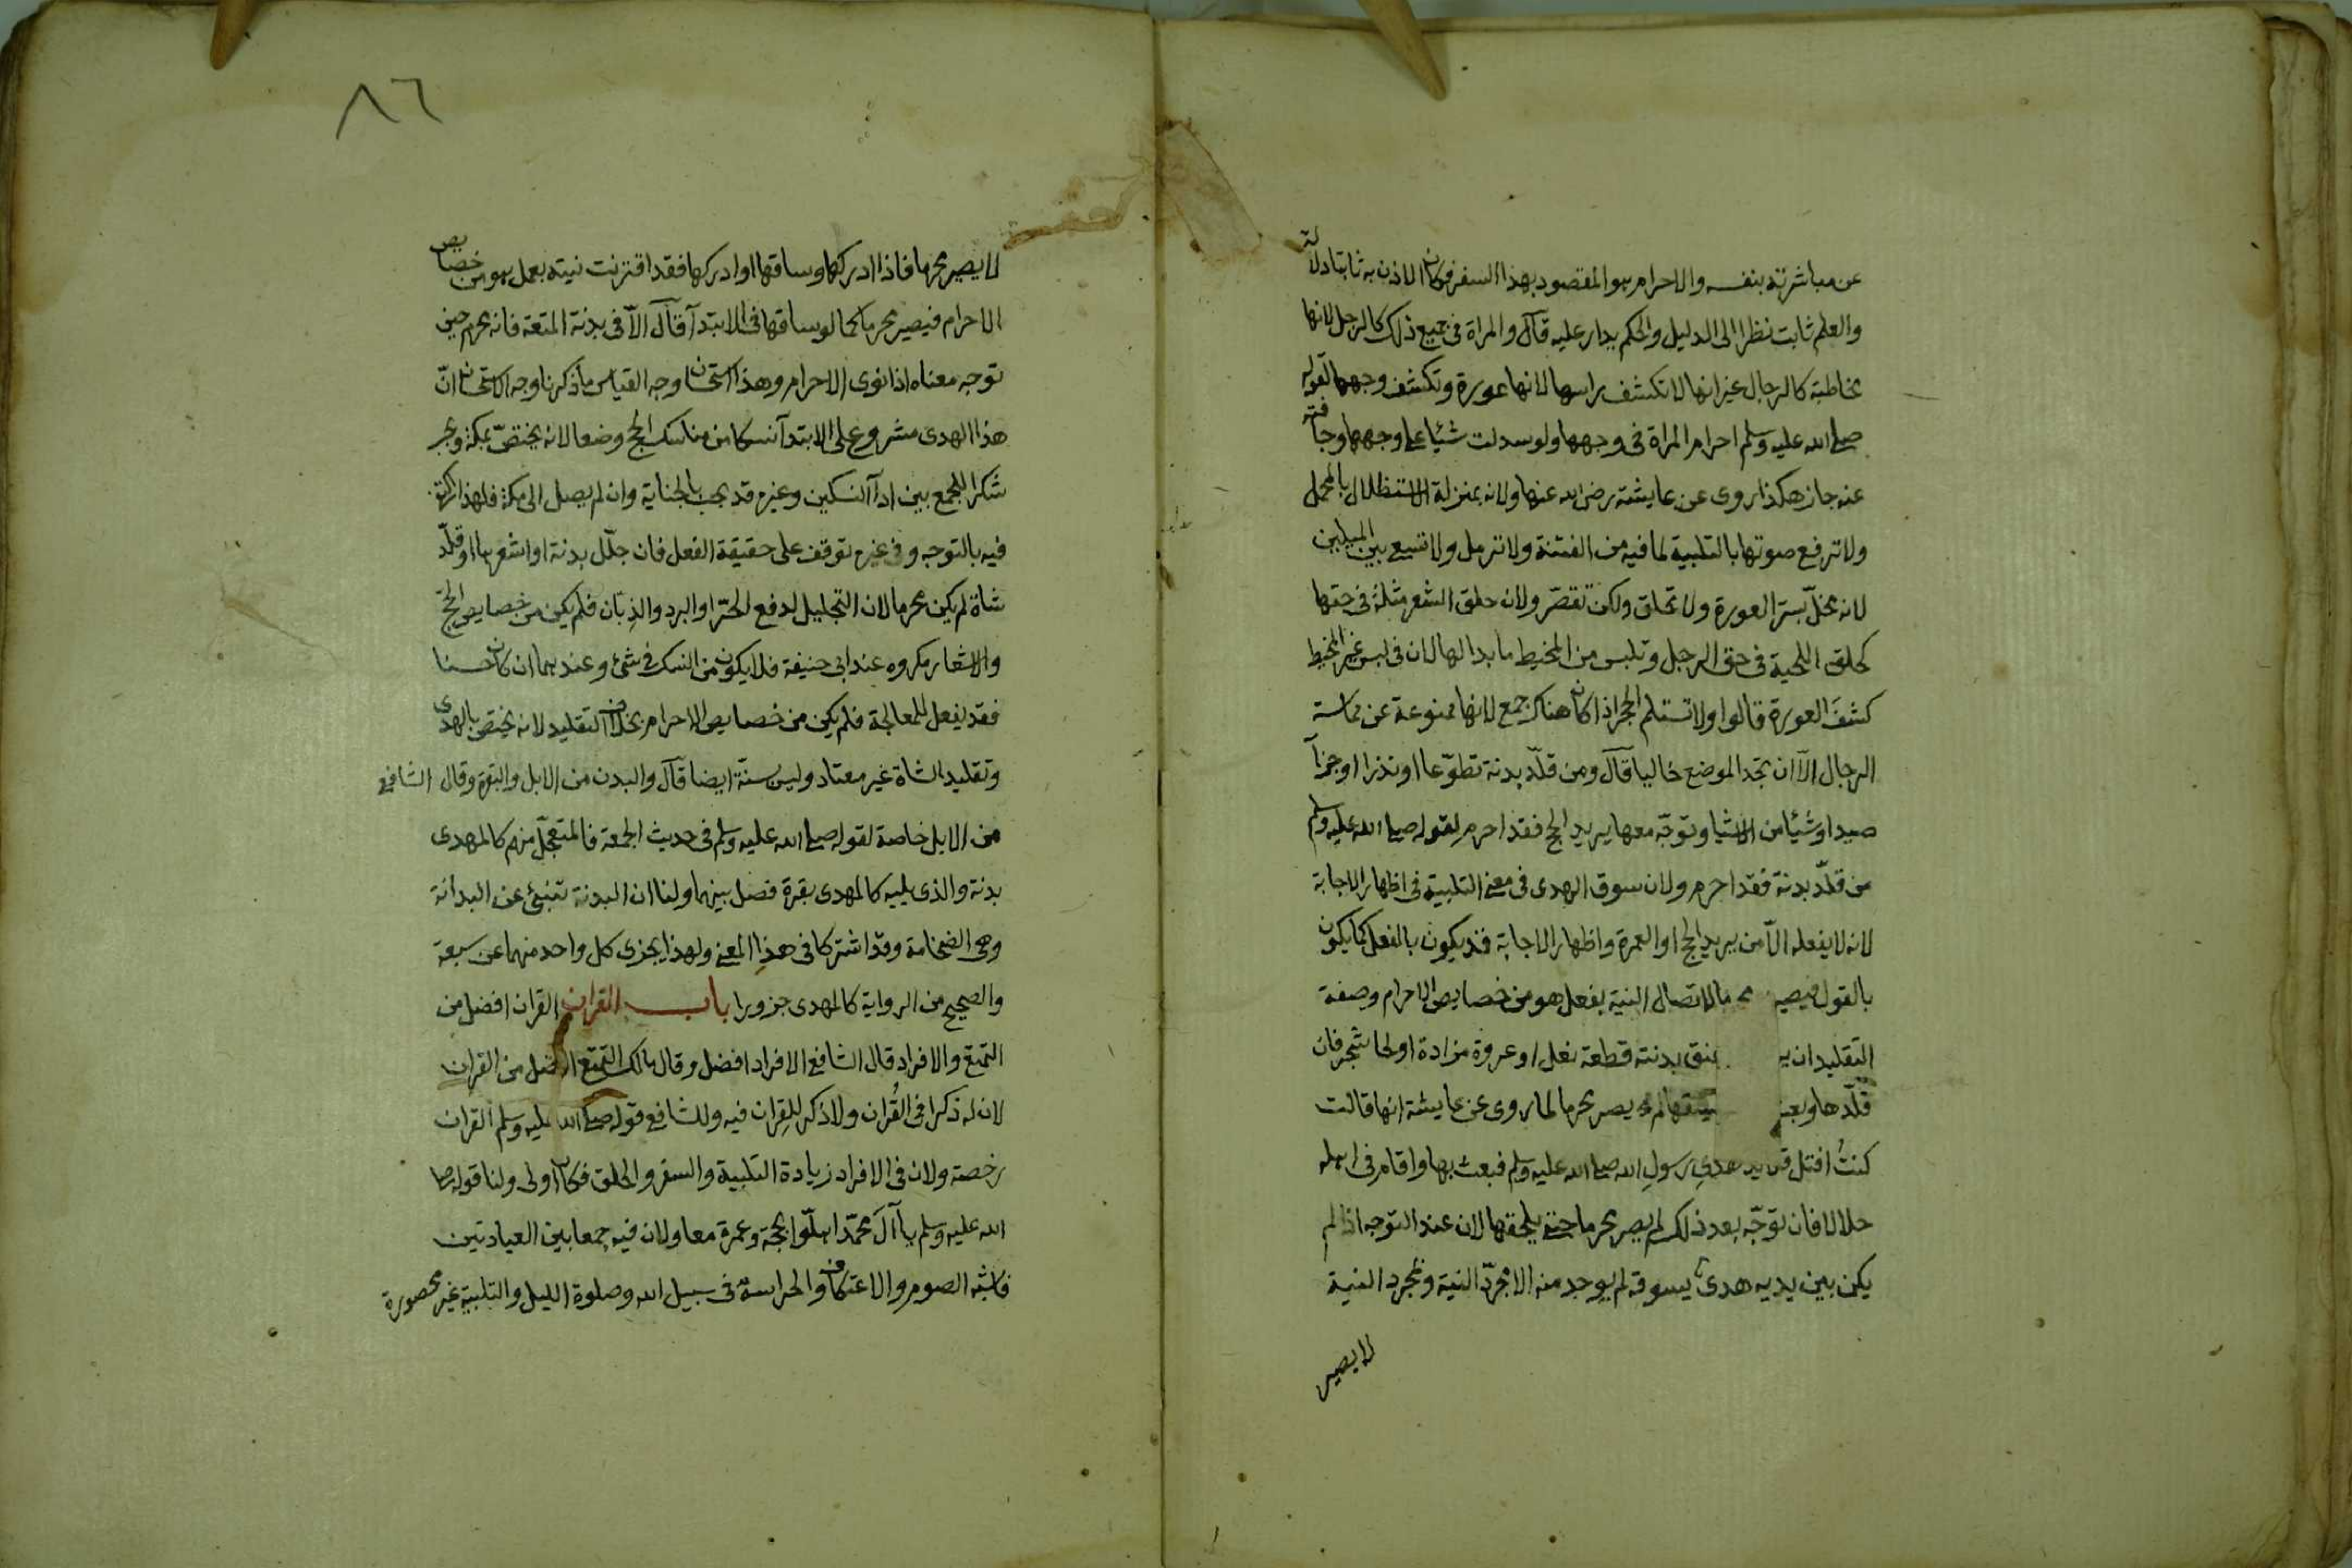 عن مباشرته بنفسه والاحرام هو المقصود بهذا السفر فكان الاذن به ثابتا دلالة
والعلم ثابت نظرا الى الدليل والحكم يدار عليه قال والمراة فى جميع ذلك كالرجل لانها
مخاطبة كالرجال غير انها لا تكشف راسها لانها عورة وتكشف وجهها لقوله
صلى الله عليه وسلم احرام المراة فى وجهها ولو سدلت شيئا على وجهها وجافته
عنه جاز هكذا روى عن عايشة رضى الله عنها ولانه بمنزلة الاستظلال بالمحمل
ولا ترفع صوتها بالتلبية لما فيه من الفتنة ولا ترمل ولا تسع بين الميلين
لانه مخلّ بستر العورة ولا تحلق ولكن تقصّر ولان حلق الشعر مثلة فى حقها
كحلق اللحية فى حق الرجل وتلبس من المخيط ما بدا لها لان فى لبس غير المخيط
كشف العورة قالوا ولا تستلم الحجر اذا كان هناك جمع لانها ممنوعة عن مماسة
الرجال الا ان تجد الموضع خاليا قال ومن قلّد بدنة تطوّعا او نذرا او جزآ
صيد او شيئا من الاشيا وتوجّه معها يريد الحج فقد احرم لقوله صلى الله عليه وسلم
من قلّد بدنة فقد احرم ولان سوق الهدى فى معنى التلبية فى اظهار الاجابة
لانه لا يفعله الاّ من يريد الحج او العمرة واظهار الاجابة قد يكون بالفعل كما يكون
بالقول فيصير محرما لاتصال النية بفعل هو من خصايص الاحرام وصفة
التقليد ان عنق بدنته قطعة نعل او عروة مزادة او لحا شجر فان
قلّدها وبعث يسقها لم يصر محرما لما روى عن عايشة انها قالت
كنتُ افتل قلايد هدى رسول الله صلى الله عليه وسلم فبعث بها واقام فى اهله
حلالا فان توجّه بعد ذلك لم يصر محرما حتى يلحقها لان عند التوجه اذا لم
يكن بين يديه هدى يسوقه لم يوجد منه الا مجرّد النية وبمجرد النية
لا يصير
٨٦
لا يصير محرما فاذا ادركها وساقها او ادركها فقد اقترنت نيته بعمل هو من خصايص
الاحرام فيصير محرما كما لو ساقها فى الابتدآ قال الاّ فى بدنة المتعة فانه محرم حين
توجه معناه اذا نوى الاحرام وهذا استحسان وجه القياس ما ذكرنا وجه الاستحسان انّ
هذا الهدى مشروع على الابتدآ نسكا من مناسك الحج وضعا لانه يختصّ بمكة ويجب
شكرا للجمع بين ادآ النسكين وغيره قد يجب بالجناية وان لم يصل الى مكة فلهذا اكتفى
فيه بالتوجه وفى غيره توقف على حقيقة الفعل فان جلّل بدنة او اشعرها او قلّد
شاة لم يكن محرما لان التجليل لدفع الحرّ او البرد والذِبّان فلم يكن من خصايص الحجّ
والاشعار مكروه عند ابى حنيفة فلا يكون من النسك فى شئ وعندهما ان كان حسنا
فقد يفعل للمعالجة فلم يكن من خصايص الاحرام بخلاف التقليد لانه يختص بالهدى
وتقليد الشاة غير معتاد وليس سنّة ايضا قال والبدن من الابل والبقرة وقال الشافعى
من الابل خاصة لقوله صلى الله عليه وسلم فى حديث الجمعة فالمتعجّل منهم كالمهدى
بدنة والذى يليه كالمهدى بقرة فصل بينهما ولنا ان البدنة تنبئ عن البدانة
وهى الضخامة وقد اشتركا فى هذا المعنى ولهذا يجزى كل واحد منهما عن سبعة
والصحيح من الرواية كالمهدى جزورا باب القران القران افضل من
التمتع والافراد قال الشافعى الافراد افضل وقال مالك التمتع افضل من القران
لان له ذكرا فى القُرآن ولا ذكر للقِران فيه وللشافعى قوله صلى الله عليه وسلم القران
رخصة ولان فى الافراد زيادة التلبية والسفر والحلق فكان اولى ولنا قوله صلى
الله عليه وسلم يا آل محمّد اهلّوا بحجة وعمرة معا ولان فيه جمعا بين العبادتين
فاشبه الصوم والاعتكاف والحراسة فى سبيل الله وصلوة الليل والتلبية غير محصورة